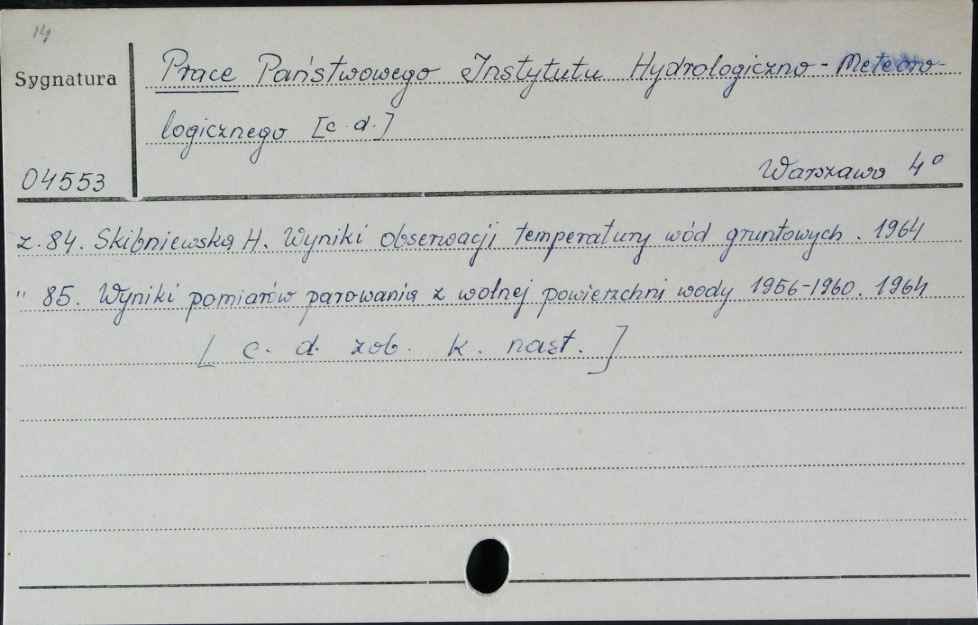 14
Sygnatura
Prace Państwowego Instytutu Hydrologiczno-Meteoro-
logicznego [c.d.]
04553
Warszawa 4°
z. 84. Skibniewska H. Wyniki obserwacji temperatury wód gruntowych. 1964
" 85. Wyniki pomiarów parowania z wolnej powierzchni wody 1956-1960. 1964
[c. d. zob. k. nast.]